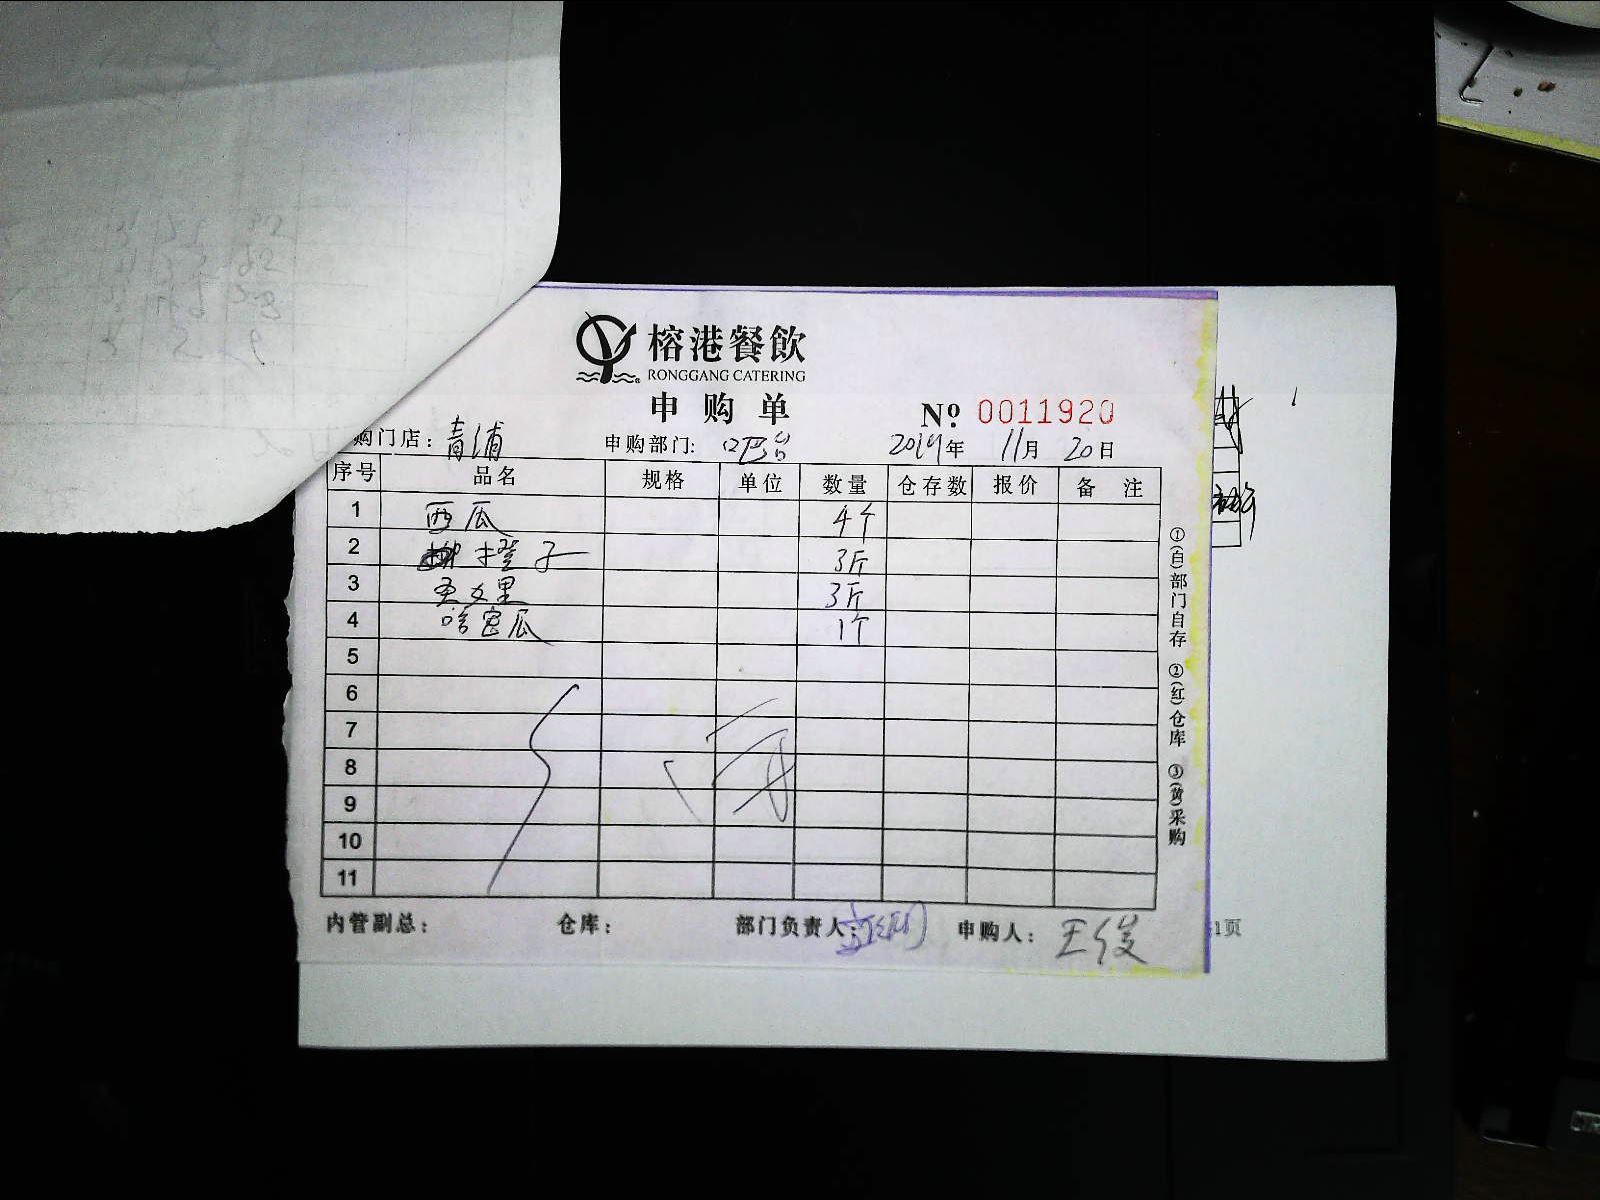 榕港餐飲
RONGGANG CATERING
申购单
№ 0011920
购门店：青浦 申购部门：吧台 2019年 11月 20日
序号 品名 规格 单位 数量 仓存数 报价 备 注
1 西瓜 4个
2 橙子 3斤
3 3斤
4 哈密瓜 1个
5
6
7
8
9
10
11
①(白)部门自存 ②(红)仓库 ③(黄)采购
内管副总： 仓库： 部门负责人： 申购人：王俊
1页